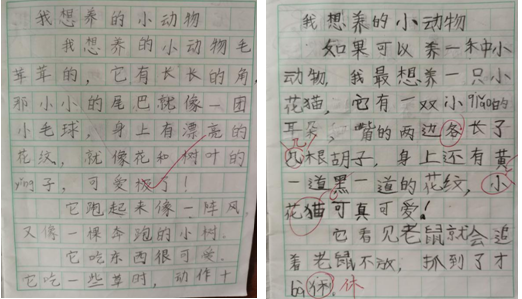 我想养的小动物
我想养的小动物毛
茸茸的，它有长长的角，
那小小的尾巴就像一团
小毛球，身上有漂亮的
花纹，就像花和树叶的
子，可爱极了！
它跑起来像一阵风，
又像一棵奔跑的小树。
它吃东西很可爱。
它吃一些草时，动作十
我想养的小动物
如果可以养一种小
动物，我最想养一只小
花猫，它有一双小小的
耳朵 嘴的两边各长了
几根胡子，身上还有黄
一道黑一道的花纹，小
花猫可真可爱！
它看见老鼠就会追
着老鼠不放，抓到了才
休